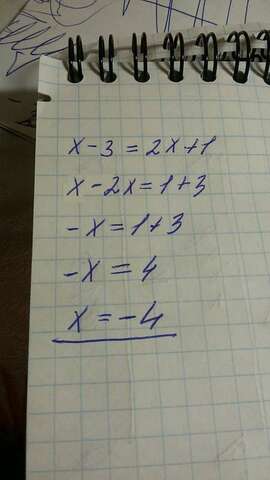 x-3=2x+1
x-2x=1+3
-x=1+3
-x=4
x=-4